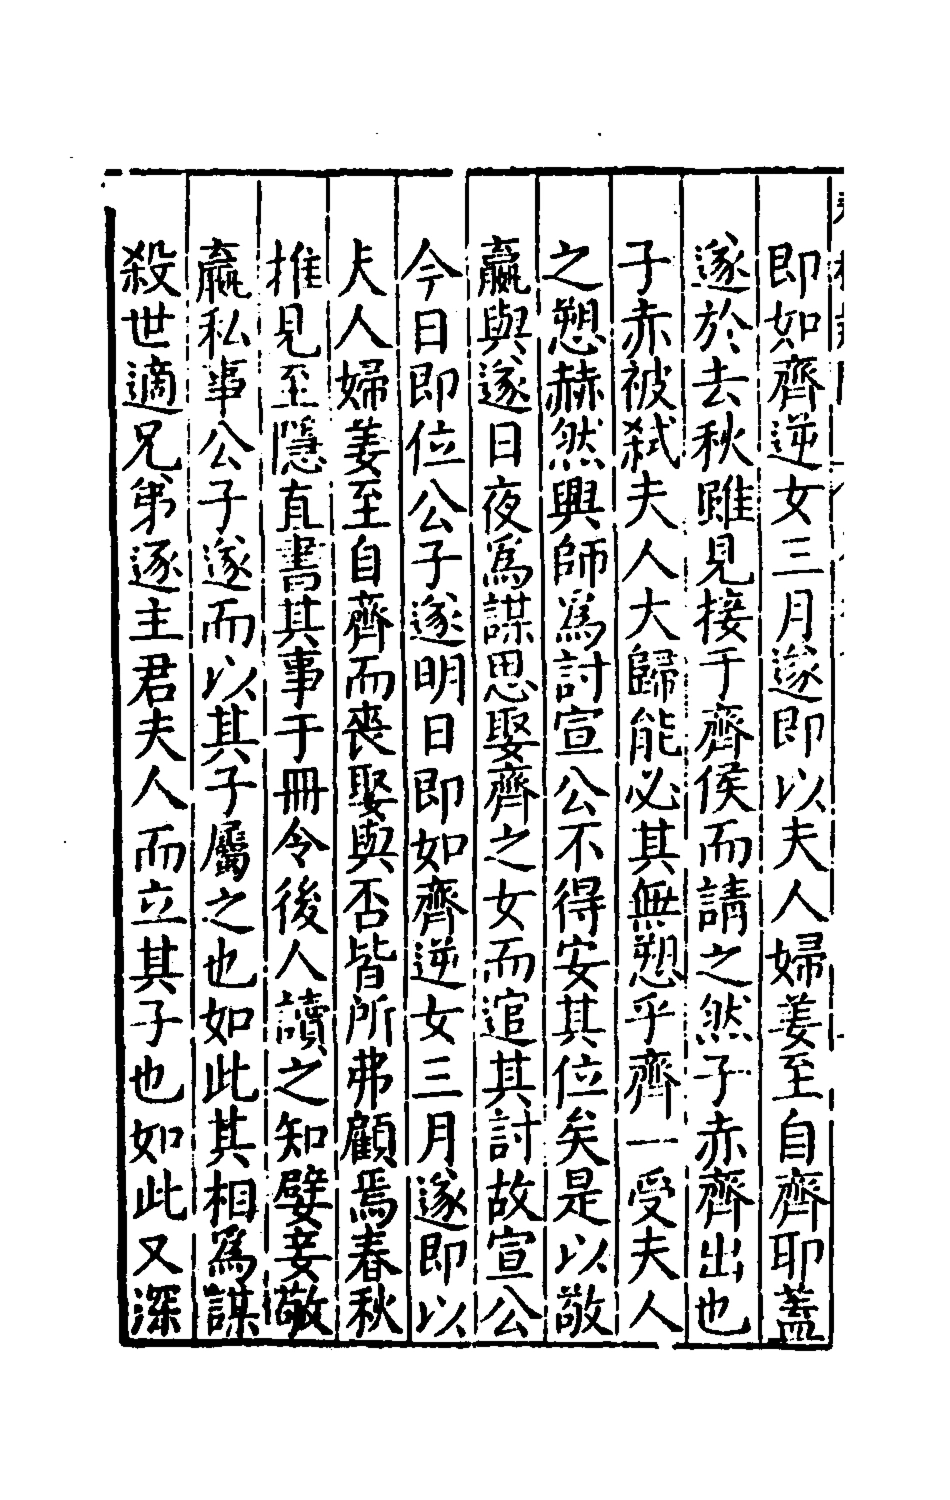 即如齊逆女三月遂即以夫人婦姜至自齊耶蓋
遂於去秋雖見接于齊侯而請之然子赤齊出也
子赤被弑夫人大歸能必其無愬乎齊一受夫人
之愬赫然興師為討宣公不得安其位矣是以敬
嬴與遂日夜為謀思娶齊之女而逭其討故宣公
今日即位公子遂明日即如齊逆女三月遂即以
夫人婦姜至自齊而喪娶與否皆所弗顧焉春秋
推見至隱直書其事于冊令後人讀之知嬖妾敬
嬴私事公子遂而以其子屬之也如此其相為謀
殺世適兄弟逐主君夫人而立其子也如此又深